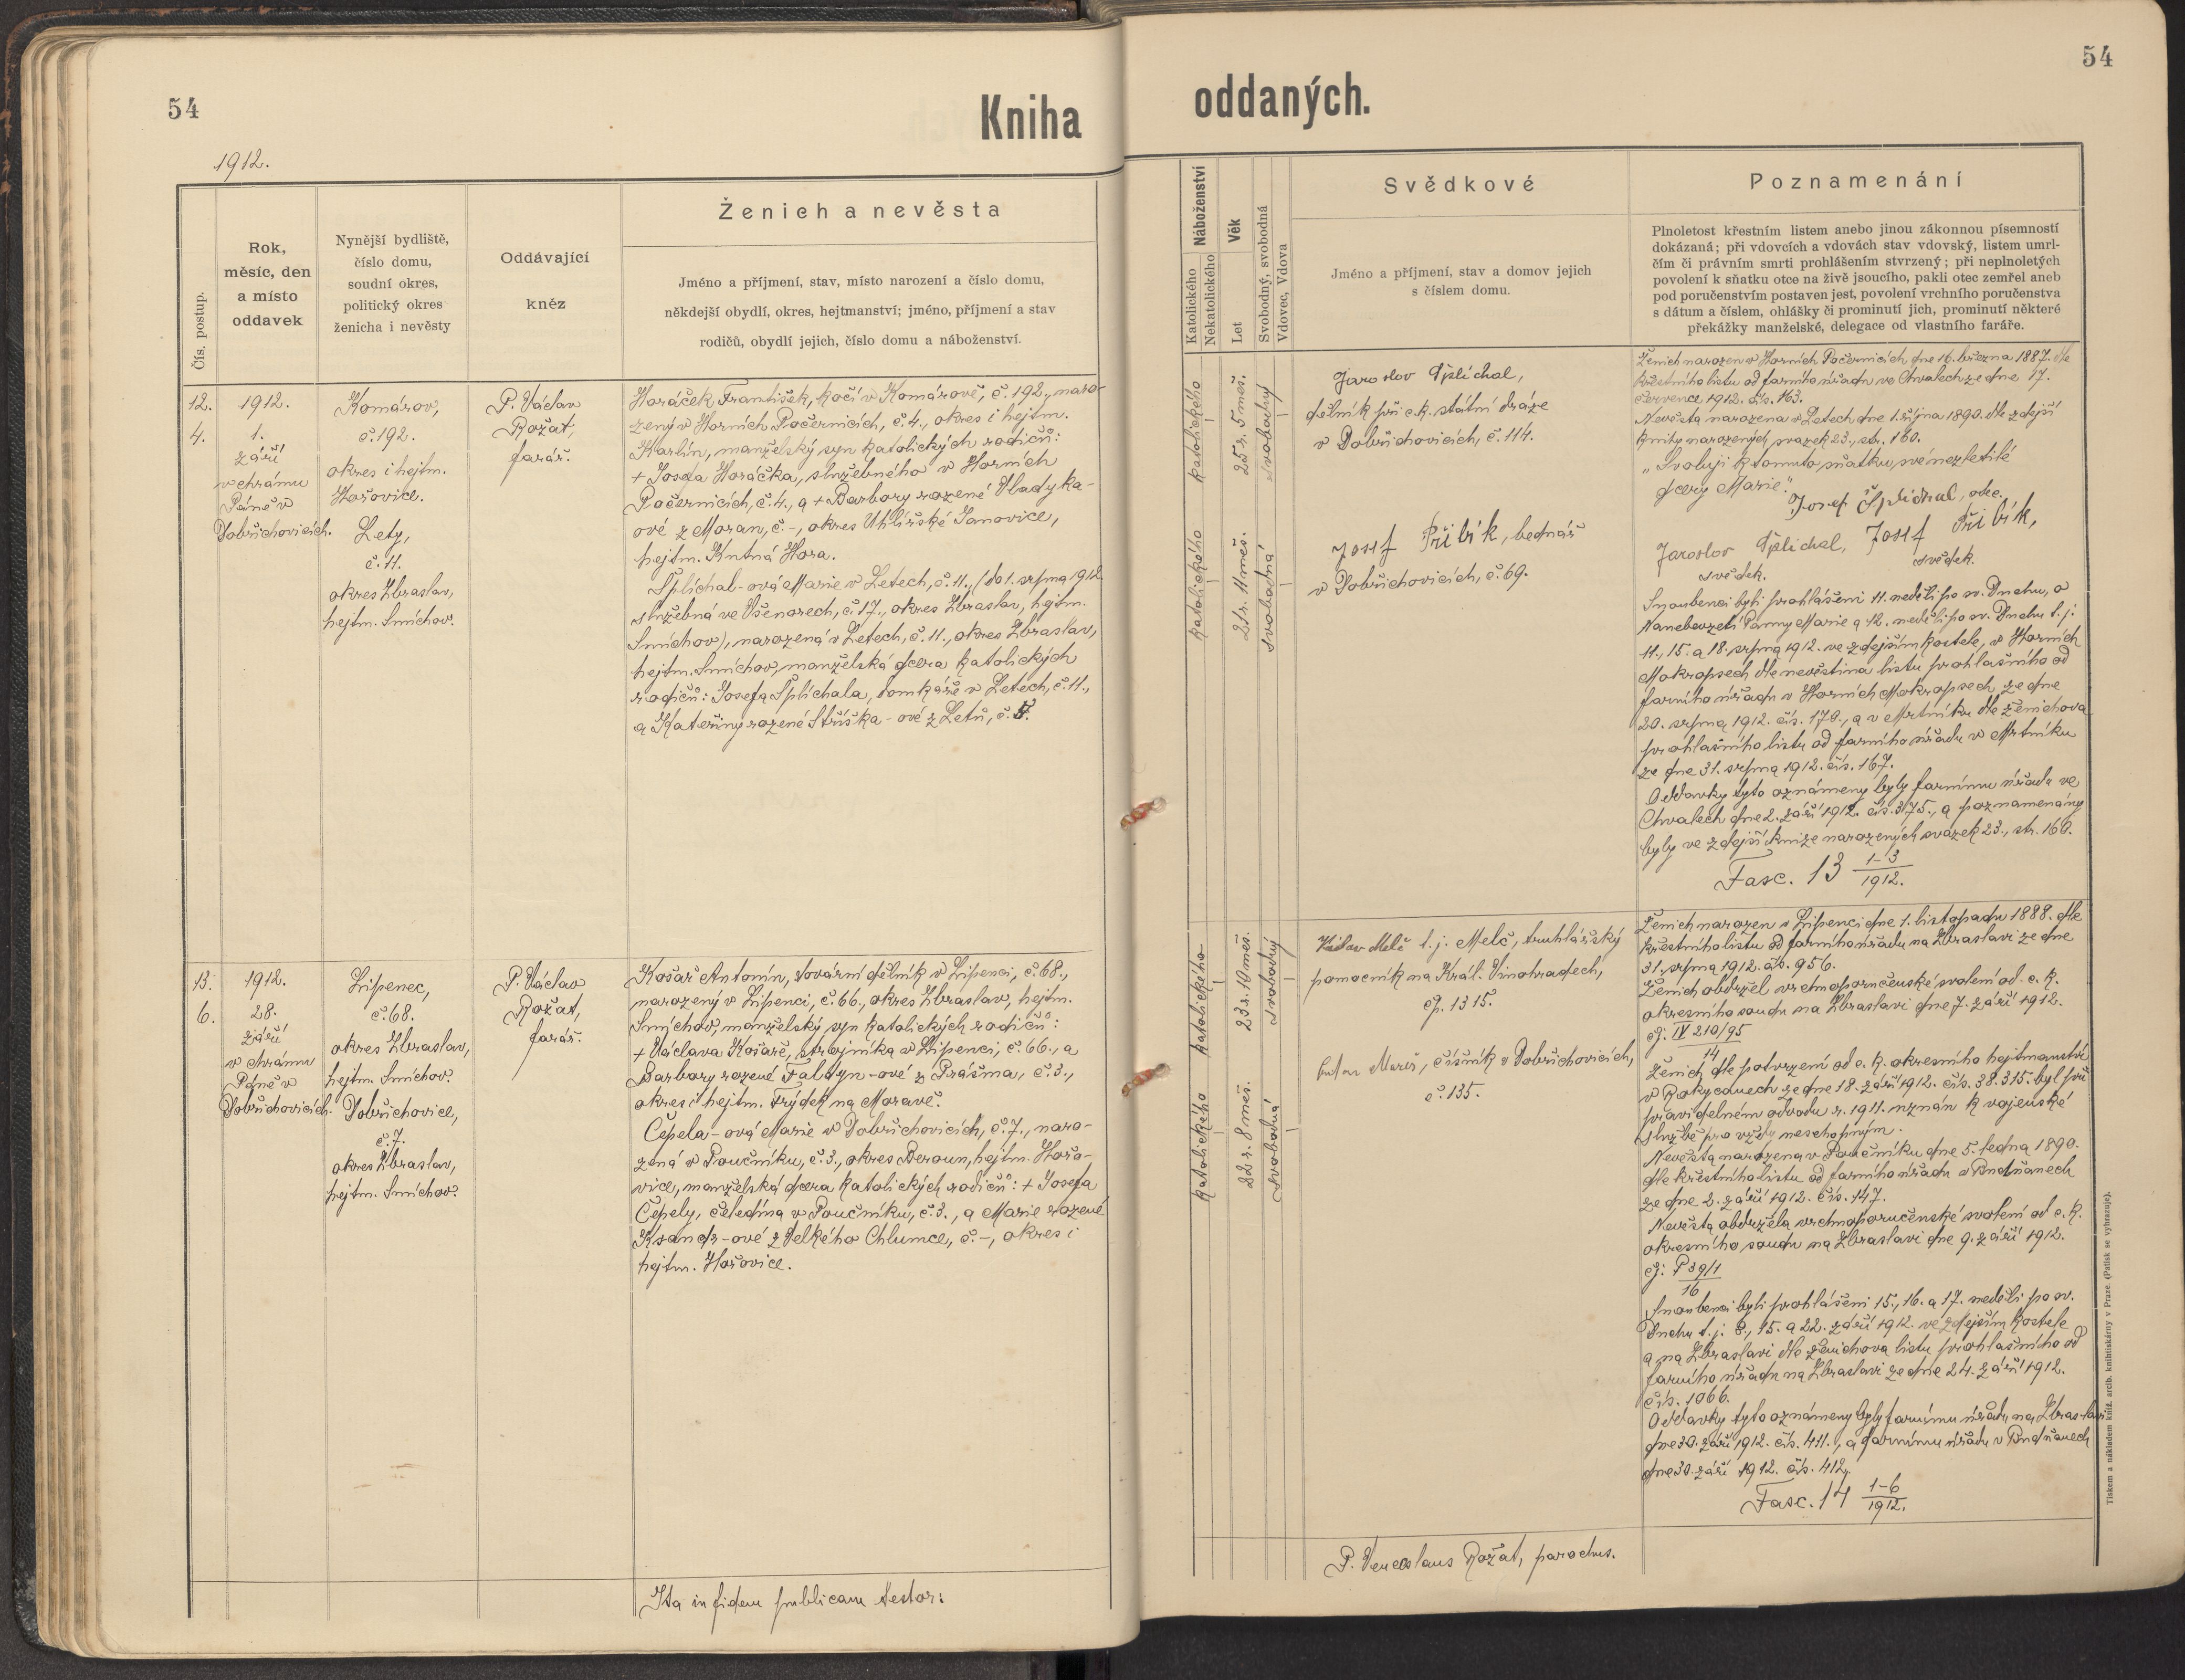 54
Kniha
1912.
Čís. postup.
Rok,
měsíc, den
a místo
oddavek
Nynější bydliště,
číslo domu,
soudní okres,
politický okres
ženicha i nevěsty
Oddávající
kněz
Ženich a nevěsta
Jméno a příjmení, stav, místo narození a číslo domu,
někdejší obydlí, okres, hejtmanství; jméno, příjmení a stav
rodičů, obydlí jejich, číslo domu a náboženství.
12.
4.
1912.
1.
září
v chrámu
Páně v
Dobřichovicích.
Komárov,
č. 192.
okres i hejtm.
Hořovice.
Lety,
č. 11.
okres Zbraslav,
hejtm. Smíchov.
P. Václav
Rožat,
farář.
Horáček František, kočí v Komárově, č. 192., naro-
zený v Horních Počernicích, č. 4., okres i hejtm.
Karlín, manželský syn katolických rodičů:
+ Josefa Horáčka, služebného v Horních
Počernicích, č. 4., a + Barbory rozené Vladyka-
ové z Moran, č. -, okres Uhlířské Janovice,
hejtm. Kutná Hora.
Šplíchal-ová Marie v Letech, č. 11., (do 1. srpna 1912
služebná ve Všenorech, č. 17., okres Zbraslav, hejtm.
Smíchov), narozená v Letech, č. 11., okres Zbraslav,
hejtm. Smíchov, manželská dcera katolických
rodičů: Josefa Šplíchala, domkáře v Letech, č. 11.,
a Kateřiny rozené Stříška-ové z Letů, č. 5.
13.
6.
1912.
28.
září
v chrámu
Páně v
Dobřichovicích.
Lipenec,
č. 68.
okres Zbraslav,
hejtm. Smíchov.
Dobřichovice,
č. 7.
okres Zbraslav,
hejtm. Smíchov.
P. Václav
Rožat,
farář.
Košař Antonín, tovární dělník v Lipenci, č. 68.,
narozený v Lipenci, č. 66., okres Zbraslav, hejtm.
Smíchov, manželský syn katolických rodičů:
+ Václava Košaře, strojníka v Lipenci, č. 66., a
Barbory rozené Faldyn-ové z Prášma, č. 3.,
okres i hejtm. Frýdek na Moravě.
Čepela-ová Marie v Dobřichovicích, č. 7., naro-
zená v Poučníku, č. 3., okres Beroun, hejtm. Hořo-
vice, manželská dcera katolických rodičů: + Josefa
Čepely, čeledína v Poučníku, č. 3., a Marie rozené
Ksandr-ové z Velkého Chlumce, č. -, okres i
hejtm. Hořovice.
Ita in fidem publicam testor:
54
oddaných.
Náboženství
Katolického
Nekatolického
Věk
Let
Svobodný, svobodná
Vdovec, Vdova
Svědkové
Jméno a příjmení, stav a domov jejich
s číslem domu.
Poznamenání
Plnoletost křestním listem anebo jinou zákonnou písemností
dokázaná; při vdovcích a vdovách stav vdovský, listem umrl-
čím či právním smrti prohlášením stvrzený; při neplnoletých
povolení k sňatku otce na živě jsoucího, pakli otec zemřel aneb
pod poručenstvím postaven jest, povolení vrchního poručenstva
s dátum a číslem, ohlášky či prominutí jich, prominutí některé
překážky manželské, delegace od vlastního faráře.
katolického
25 r. 5 měs.
svobodný
katolického
21 r. 11 měs.
svobodná
Jaroslav Šplíchal,
dělník při c. k. státní dráze
v Dobřichovicích, č. 114.
Josef Přibík, bednář
v Dobřichovicích, č. 69.
Ženich narozen v Horních Počernicích dne 16. března 1887. dle
křestního listu od farního úřadu ve Chvalech ze dne 17.
července 1912. čís. 163.
Nevěsta narozena v Letech dne 1. října 1890. dle zdejší
knihy narozených svazek 23., str. 160.
"Svoluji k tomuto sňatku své nezletilé
dcery Marie."
Josef Šplíchal, otec.
Jaroslav Šplíchal, Josef Přibík,
svědek. svědek.
Snoubenci byli prohlášeni 11. neděli po sv. Duchu, o
Nanebevzetí Panny Marie a 12. neděli po sv. Duchu t. j.
11., 15. a 18. srpna 1912. ve zdejším kostele, v Horních
Mokropsech dle nevěstina listu prohlašního od
farního úřadu v Horních Mokropsech ze dne
20. srpna 1912. čís. 170., a v Mrtníku dle ženichova
prohlašního listu od farního úřadu v Mrtníku
ze dne 31. srpna 1912. čís. 167.
Oddavky tyto oznámeny byly farnímu úřadu ve
Chvalech dne 2. září 1912. čís. 375., a poznamenány
byly ve zdejší knize narozených svazek 23., str. 160.
Fasc. 13 1-3/1912.
katolického
23 r. 10 měs.
svobodný
katolického
22 r. 8 měs.
svobodná
Václav Melč t. j. Melč, truhlářský
pomocník na Král. Vinohradech,
čp. 1315.
Mareš, číšník v Dobřichovicích,
č. 135.
Ženich narozen v Lipenci dne 1. listopadu 1888. dle
křestního listu od farního úřadu na Zbraslavi ze dne
31. srpna 1912. čís. 956.
Ženich obdržel vrchnoporučenské svolení od c. k.
okresního soudu na Zbraslavi dne 7. září 1912.
čj. IV 210/95
14
Ženich dle potvrzení od c. k. okresního hejtmanství
v Rokycanech ze dne 18. září 1912. čís. 38.315. byl při
pravidelném odvodu r. 1911. uznán k vojenské
službě pro vždy neschopným.
Nevěsta narozena v Poučníku dne 5. ledna 1890.
dle křestního listu od farního úřadu v Budňanech
ze dne 2. září 1912. čís. 147.
Nevěsta obdržela vrchnoporučenské svolení od c. k.
okresního soudu na Zbraslavi dne 9. září 1912.
čj: P 39/1
16
Snoubenci byli prohlášeni 15., 16. a 17. neděli po sv.
Duchu t. j. 8., 15. a 22. září 1912. ve zdejším kostele
a na Zbraslavi dle ženichova listu prohlašního od
farního úřadu na Zbraslavi ze dne 24. září 1912.
čís. 1066.
Oddavky tyto oznámeny byly farnímu úřadu na Zbraslavi
dne 30. září 1912. čís. 411., a farnímu úřadu v Budňanech
dne 30. září 1912. čís. 412.
Fasc. 14 1-6/1912.
P. Venceslaus Rožat, parochus.
Tiskem a nákladem kníž. arcib. knihtiskárny v Praze. (Patisk se vyhrazuje).